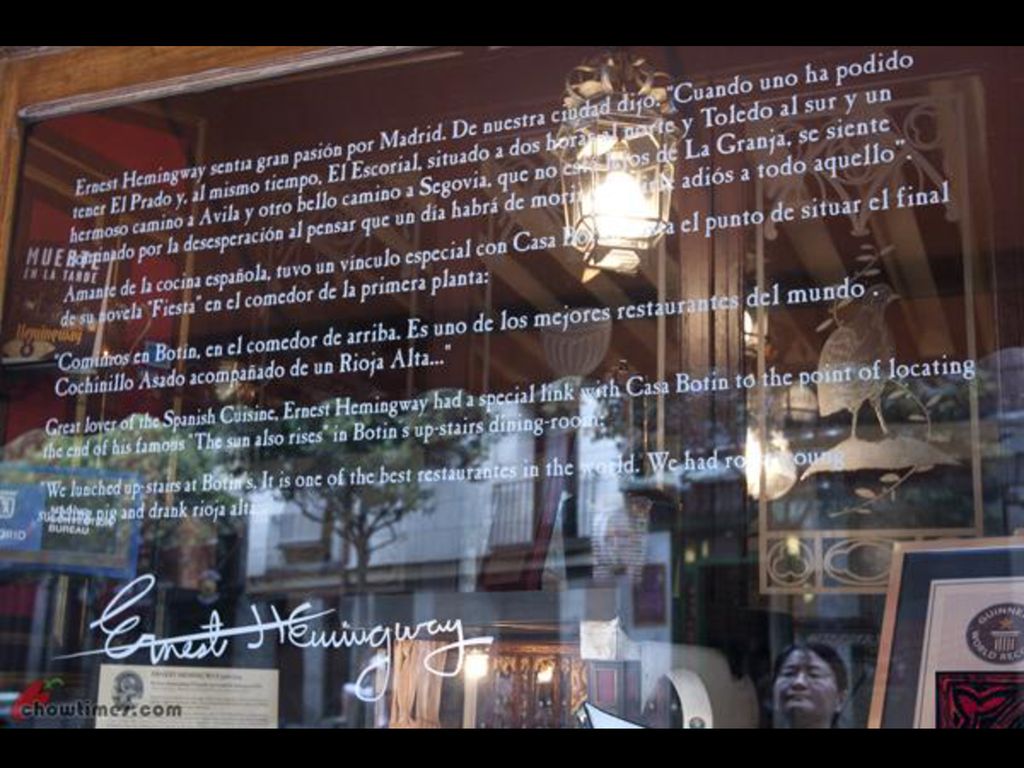 Ernest Hemingway sentia gran pasión por Madrid. De nuestra ciudad dijo: "Cuando uno ha podido
tener El Prado y, al mismo tiempo, El Escorial, situado a dos horas al norte y Toledo al sur y un
hermoso camino a Avila y otro bello camino a Segovia, que no está lejos de La Granja, se siente
dominado por la desesperación al pensar que un día habrá de morir y adiós a todo aquello".
Amante de la cocina española, tuvo un vínculo especial con Casa el punto de situar el final
de su novela "Fiesta" en el comedor de la primera planta:
"Comimos en Botín, en el comedor de arriba. Es uno de los mejores restaurantes del mundo.
Cochinillo Asado acompañado de un Rioja Alta..."
Great lover of the Spanish Cuisine, Ernest Hemingway had a special link with Casa Botín to the point of locating
the end of his famous "The sun also rises" in Botin's up-stairs dining-room:
"We lunched up-stairs at Botin's. It is one of the best restaurants in the world. We had roast young
suckling pig and drank rioja alta
Ernest Hemingway
EN LA TARDE
Hemingway
BUREAU
GUINNESS
WORLD
chowtimes.com